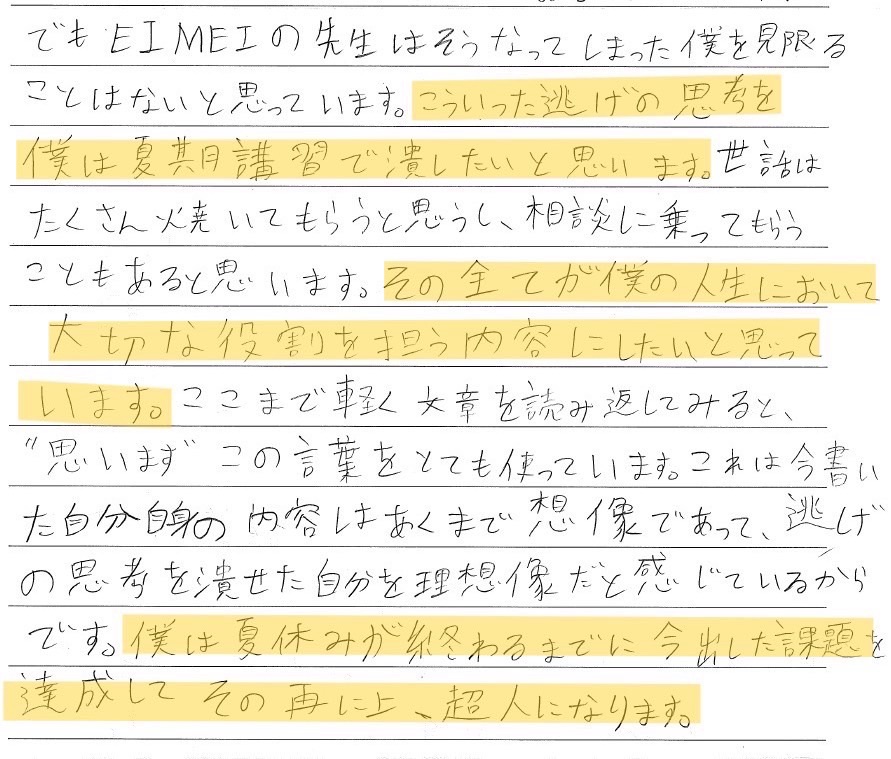 でもEIMEIの先生はそうなってしまった僕を見限る
ことはないと思っています。こういった逃げの思考を
僕は夏期講習で潰したいと思います。世話は
たくさん焼いてもらうと思うし、相談に乗ってもらう
こともあると思います。その全てが僕の人生において
大切な役割を担う内容にしたいと思って
います。ここまで軽く文章を読み返してみると、
"思います"この言葉をとても使っています。これは今書い
た自分自身の内容はあくまで想像であって、逃げ
の思考を潰せた自分を理想像だと感じているから
です。僕は夏休みが終わるまでに今出した課題を
達成してその再に上、超人になります。